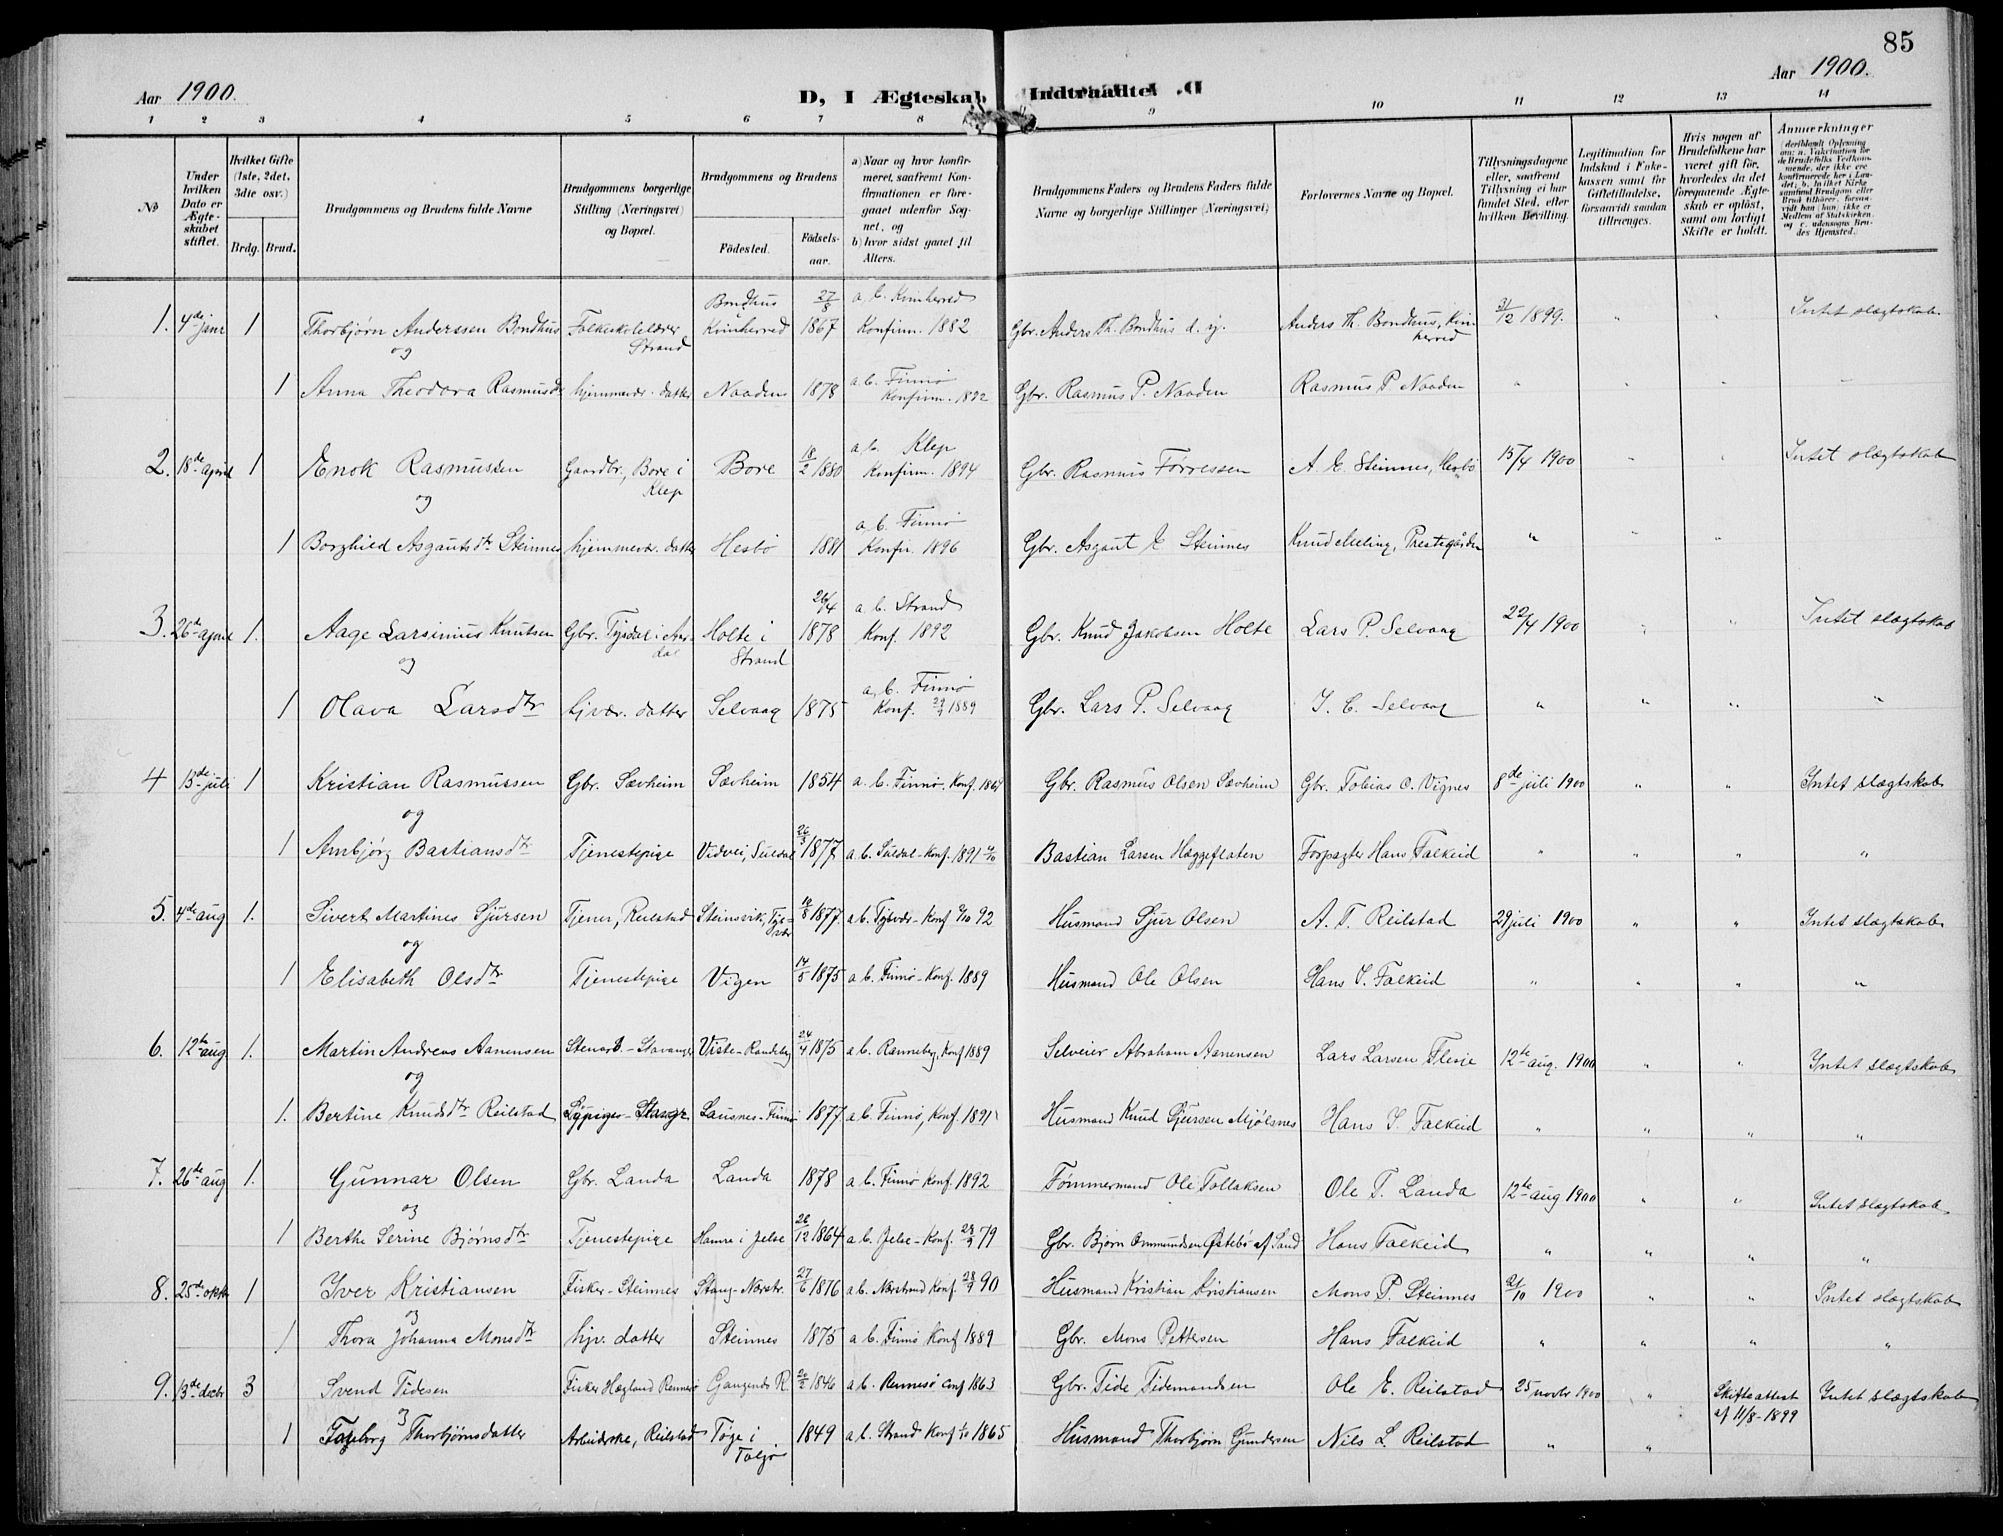 85
Aar 1900.
D, I Ægteskab Indtraadte.
Aar 1900.
1 2 3 4 5 6 7 8 9 10 11 12 13 14
№
Under hvilken Dato er Ægteskabet stiftet.
Hvilket Gifte (1ste, 2det, 3die osv.)
Brdg. Brud.
Brudgommens og Brudens fulde Navne
Brudgommens borgerlige Stilling (Næringsvei) og Bopæl.
Brudgommens og Brudens
Fødested.
Fødsels-aar.
a) Naar og hvor konfirmeret, saafremt Konfirmationen er foregaaet udenfor Sognet, og
b) hvor sidst gaaet til Alters.
Brudgommens Faders og Brudens Faders fulde Navne og borgerlige Stillinger (Næringsvei)
Forlovernes Navne og Bopæl.
Tillysningsdagene eller, saafremt Tillysning ei har fundet Sted, efter hvilken Bevilling.
Legitimation for Indskud i Enkekassen samt for Giftetilladelse, forsaavidt saadan tiltrænges.
Hvis nogen af Brudefolkene har været gift før, hvorledes da det foregaaende Ægteskab er opløst, samt om lovligt Skifte er holdt.
Anmærkninger
1. 4de janr 1 Thorbjørn Anderssen Bondhus Folkeskolelærer, Strand Bondhus Kvinherred 27/8 1867 a. b. Kvinherred Konfirm. 1882 Gbr. Anders Th. Bondhus d. y. Anders Th. Bondhus, Kvinherred 31/12 1899. " " Intet slægtskab
og
1 Anna Theodora Rasmusdr hjemmevær. datter Naaden 1878 a. b. Finnø Konfirm. 1892 Gbr. Rasmus P. Naaden Rasmus P Naaden " " "
2. 18de april 1 Enok Rasmussen Gaardbr, Bore i Klep Bore 18/2 1880 a b. Klep Konfirm. 1894 Gbr. Rasmus Tørressen A. E. Steinnes, Hesbø 15/4 1900 " " Intet slægtskab
og
1 Borghild Asgautsdtr Steinnes hjemmevær. datter Hesbø 1881 a. b. Finnø Konfir. 1896 Gbr. Asgaut E Steinnes Knud Meling, Prestegården " " "
3. 26de april 1. Aage Larsinius Knutsen Gbr. Tysdal i Aardal Holte i Strand 26/4 1878 a. b. Strand Konf. 1892 Gbr. Knud Jakobsen Holte Lars P. Selvaag 22/4 1900 " " Intet slægtskab
og
1 Olava Larsdtr hjvær. datter Selvaag 1875 a, b. Finnø Konf. 1889 Gbr. Lars P. Selvaag " " " "
4 13de juli 1 Kristian Rasmussen Gbr. Sævheim Sævheim 1854 a. b. Finnø. Konf. Gbr. Rasmus Olsen Sævheim Gbr. Tobias O. Vignes 8de juli 1900 " " Intet slægtskab
og
1 Ambjørg Bastiansdtr Tjenestepige Suldal 1877 a. b. Suldal - Konf. 1891 Bastian Larsen Hæggeflaten Forpagter Hans Falkeid " " " "
5. 4de aug 1. Sivert Martines Sjursen Tjener, Reilstad Steinsvik, Tysvær 1877. a b. Tysvær - Konf 92 Husmand Sjur Olsen A. T. Reilstad 29 juli 1900 " " Intet slægtskab
og
1 Elisabeth Olsdtr Tjenestepige Vigen 14/5 1875 a b. Finnø - Konf. 1889 Husmand Ole Olsen Hans S. Falkeid " " " "
6. 12te aug 1. Martin Andreas Aanensen Stavanger Viste - Randeberg 24/4 1875 a. b. Ranneberg, Konf 1889 Selveier Abraham Aanensen Lars Larsen 12te aug. 1900 " " Intet slægtskab
og
1. Bertine Knudsdtr Reilstad Lausnes - Finnø 1877. a b. Finnø, Konf. 1891 Husmand Knud Sjursen Mjølsnes Hans S. Falkeid " " " "
7. 26de aug 1. Gunnar Olsen Gbr. Landa Landa 1878 a b. Finnø Konf. 1892 Tømmermand Ole Tollaksen Ole T. Landa 12te aug 1900 " " Intet slægtskab
og
1 Berthe Serine Bjørnsdtr Tjenestepige Hamre i Jelse 26/12 1864 a b. Jelse - Konf. 79 Gbr. Bjørn Ommundsen Østebø af Sand Hans Falkeid " " " "
8. 25de oktr 1 Iver Kristiansen Fisker - Steinnes Stang - Nerstr. 1876 a b. Nerstrand Konf 28/9 90 Husmand Kristian Kristiansen Mons P. Steinnes 21/10 1900 " " Intet slægtskab
og
1 Thora Johanna Monsdtr hjv. datter Steinnes 1875 a b. Finnø Konf 1889 Gbr. Mons Pettersen Hans Falkeid " " " "
9. 13de decbr 3 Svend Tidesen Fisker Rennesø 1846 a b. Rennesø conf 1863 Gbr. Tide Tidemandsen Ole E. Reilstad 25 novbr 1900 " Skifteattest af 11/8 - 1899 Intet slægtskab
og
1 Thorbjørnsdatter Arbeiderske, Reilstad Tøge i Taljø 1849 a b. Strand Konf 1865 Husmand Thorbjørn Gundersen Nils L. Reilstad " "